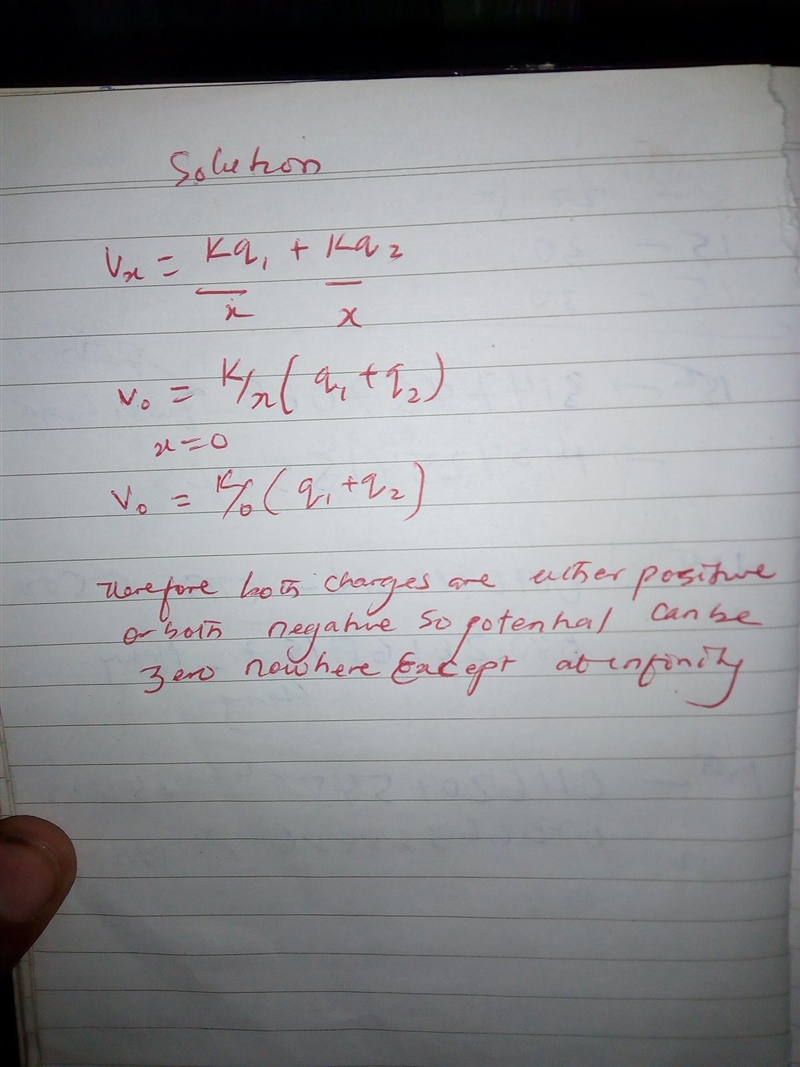 Solution
Vx = Kq1 + Kq2
x x
V0 = K/x ( q1 + q2 )
x = 0
V0 = K/0 ( q1 + q2 )
therefore both charges are either positive
or both negative so potential can be
zero nowhere Except at infinity